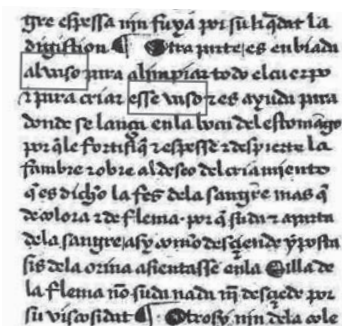 gre espessa nin fuya por su liq̃dat la
digistion ¶ Otra parte es enbiada
al viso para alinpiar todo el cuerpo
⁊ para criar esse viso ⁊ es ayuda para
donde se lança en la boca del estomãgo
por q̃ le fortifiq̃ ⁊ espesse ⁊ despierte la
fambre ⁊ obre al deseo del criamiento
q̃ es dicho la fes dela sangr̃e mas q̃
de colora ⁊ de flema · por q̃ suda ⁊ aparta
dela sangre asy como desçiende yposta
sis dela orina asientasse enla Silla de
la flema nõ suda nada nj̃ desçẽde por
su viscosidat ¶ Otrosy nin dela cole